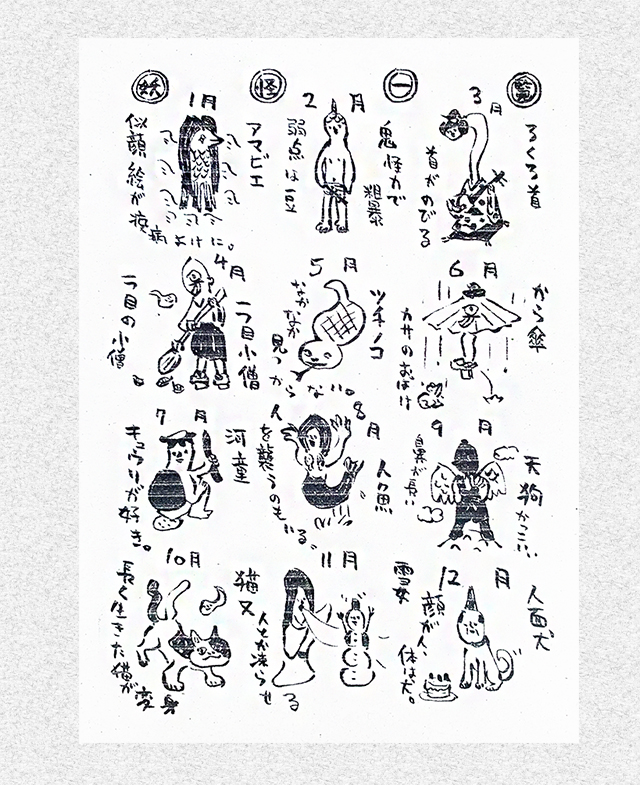 妖怪一覧
1月
アマビエ
似顔絵が疫病よけに。
2月
鬼 怪力で粗暴
弱点は豆
3月
ろくろ首
首がのびる
4月
一つ目小僧
一つ目の小僧
5月
ツチノコ
なかなか見つからない。
6月
から傘
カサのおばけ
7月
河童
キュウリが好き。
8月
人魚
人を襲うのもいる。
9月
天狗 かっこいい
鼻が長い
10月
猫又
長く生きた猫が変身
11月
雪女
人とか凍らせる
12月
人面犬
顔が人、体は犬。